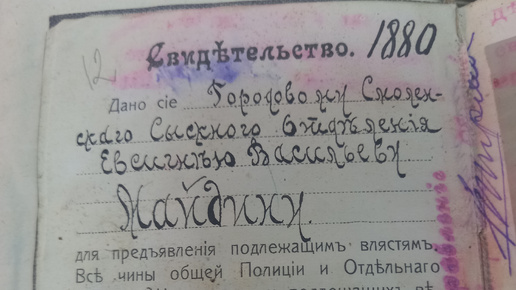 12
Свидѣтельство. 1880
Дано сіе Городовому Смолен-
скаго Сыскного Отдѣленія
Евгенію Васильеву
Найдину.
для предъявленія подлежащимъ властямъ.
Всѣ чины общей Полиціи и Отдѣльнаго